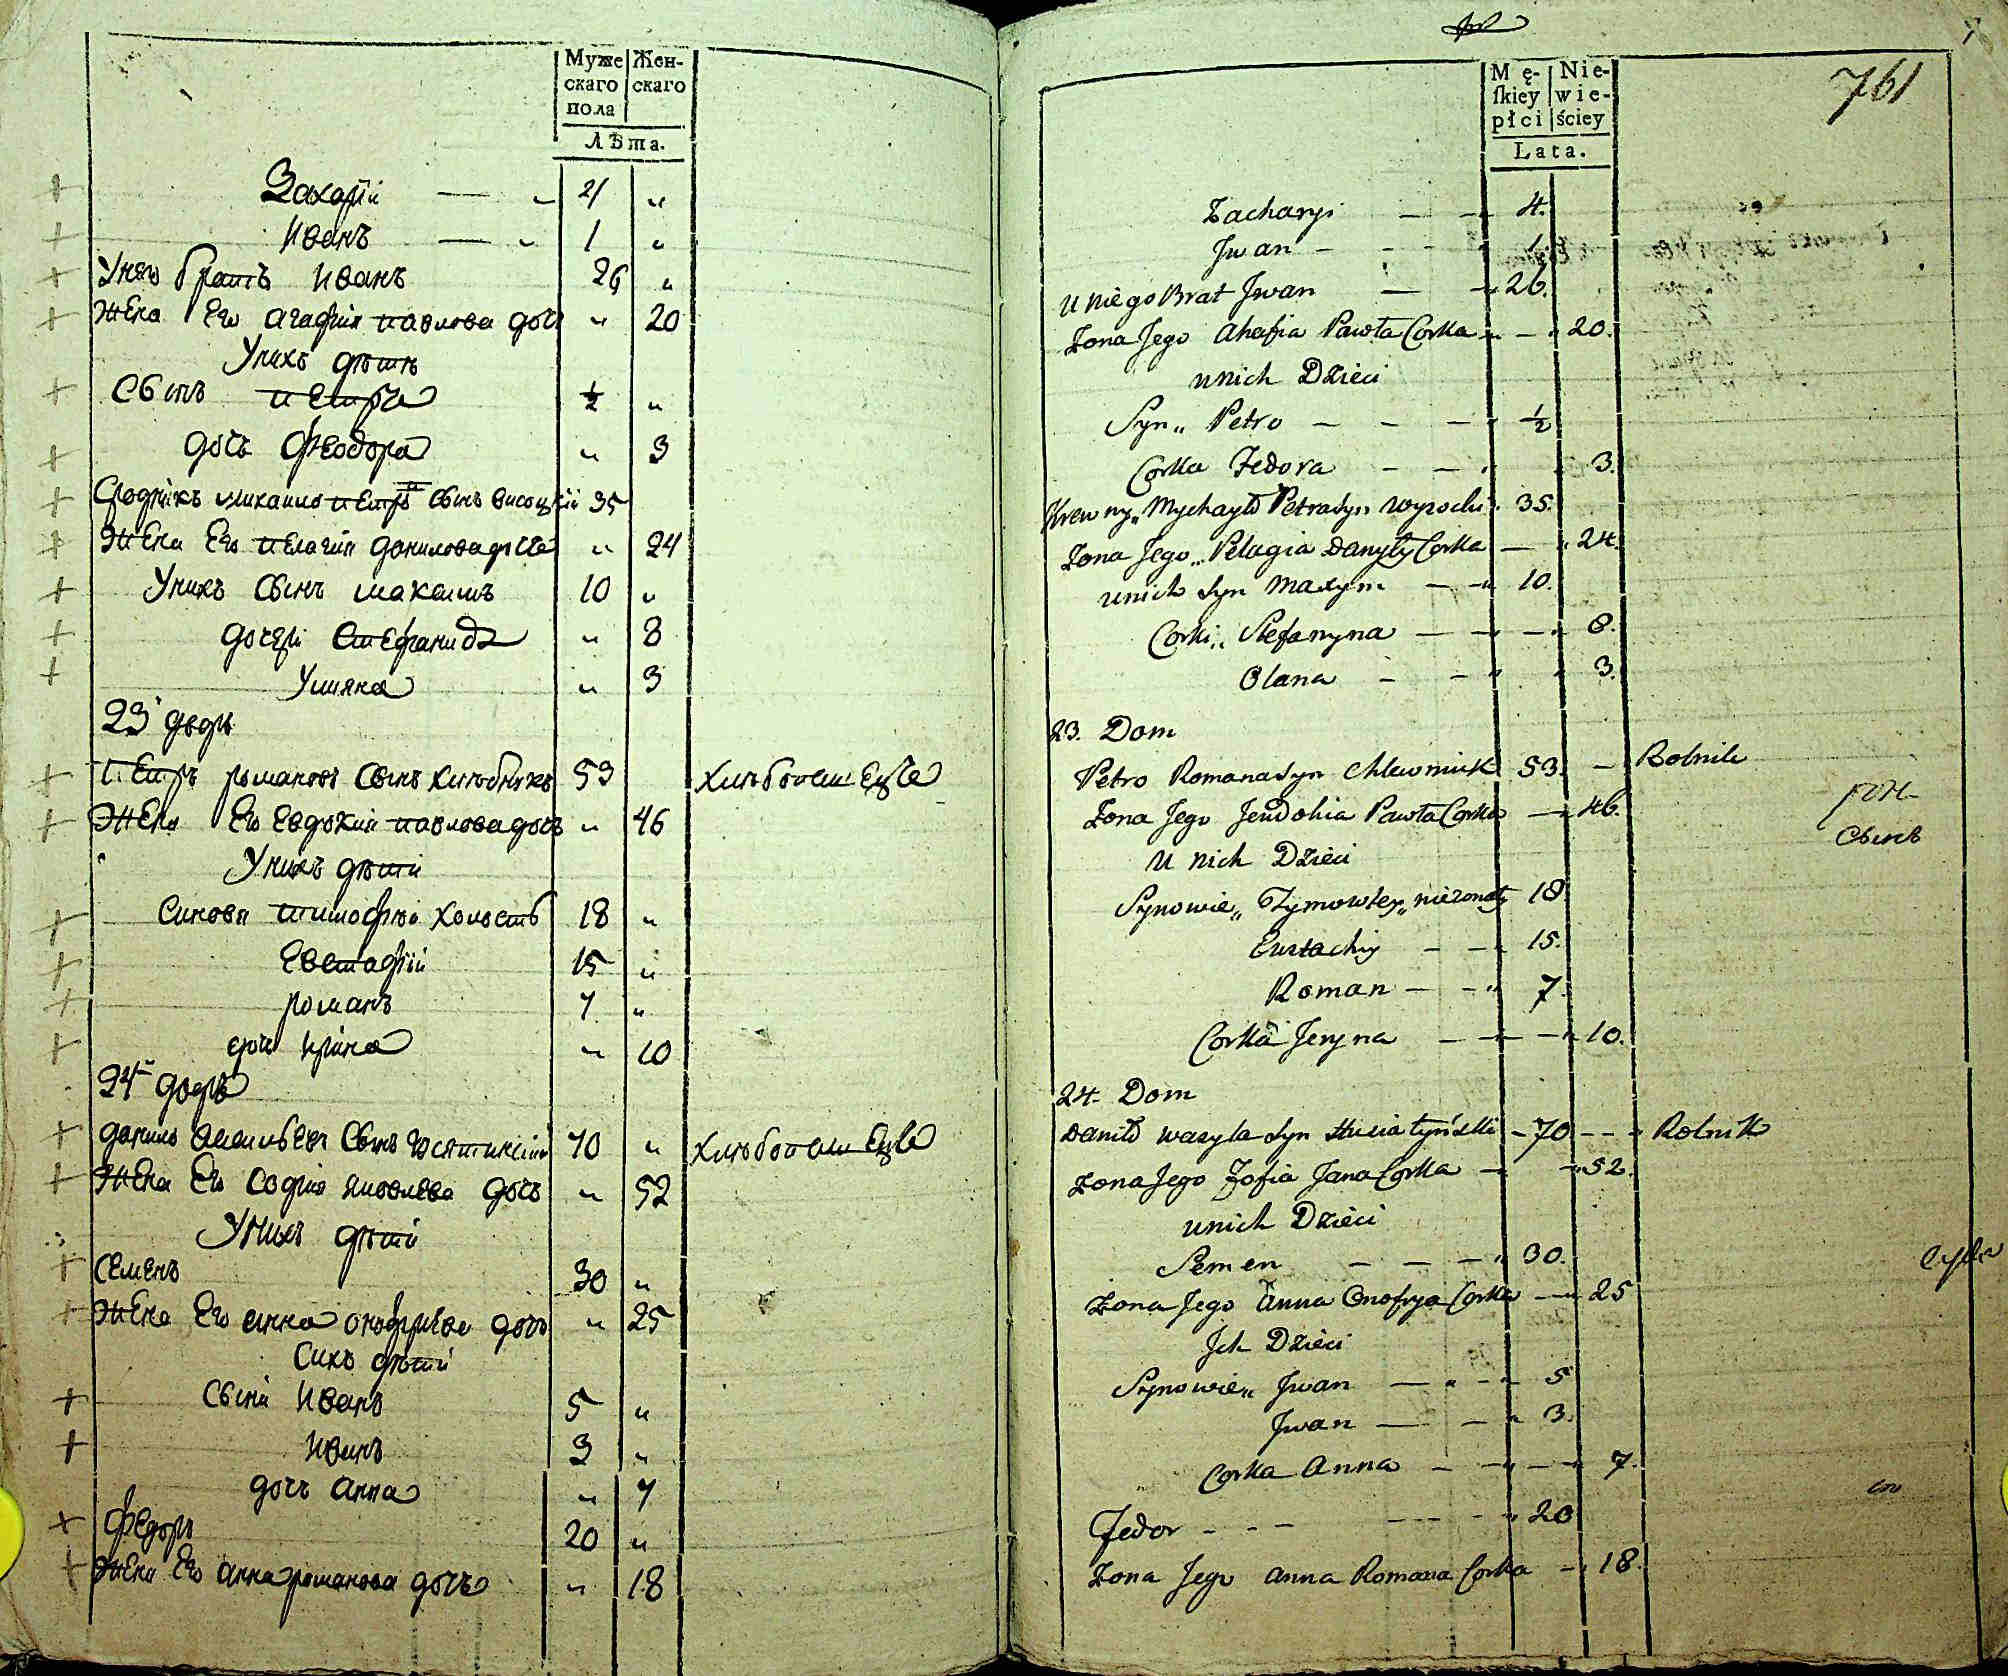 Муже Жен-
скаго скаго
пола
Лѣта.
Захарій — 21 „
Иванъ — 1 „
Унего братъ Иванъ 26 „
Жена Его агафия павлова дочь „ 20
Унихъ дѣти
Сынъ петръ ½ „
дочь Феодора „ 3
Сродникъ михаило петровъ сынъ високий 35
Жена Его пелагия данилова дочь „ 24
Унихъ сынъ максимъ 10 „
дочери Стефанида „ 8
Уляна „ 3
23 дворъ
Петръ романовъ сынъ хлебникъ 53 хлѣбопашецъ
Жена Его Евдокия павлова дочь „ 46
Унихъ дѣти
Синови тимофѣй холостъ 18 „
Евстафий 15 „
романъ 7 „
дочь Ирина „ 10
24 дворъ
данило васильевъ сынъ гусятинский 70 „ хлѣбопашецъ
Жена Его София яковлева дочь „ 52
Унихъ дѣти
Семенъ 30 „
Жена Его анна онофриева дочь „ 25
Сихъ дѣти
Сыни Иванъ 5 „
Иванъ 3 „
дочь анна „ 7
Федоръ 20 „
Жена Его анна романова дочь „ 18
761
Mę- Nie-
ſkiey wie-
płci ściey
Lata.
Zacharyi — 4.
Jwan — 1.
u niego Brat Jwan — 26.
Zona Jego Ahafia Pawła Corka — 20.
unich Dzieci
Syn„ Petro — ½
Corka Fedora — 3.
Krewny„ Mychayło Petra Syn wysocki 35.
Zona Jego„ Pelagia Danyły Corka — 24.
unich Syn Maxym — 10.
Corki„ Stefanyna — 8.
Olana — 3.
23. Dom
Petro Romana Syn Chlewniuk 53. — Rolnik
Zona Jego Jeudohia Pawła Corka — 46.
U nich Dzieci
Synowie„ Tymowtey„ niezonaty 18
Eustachiy — 15.
Roman — 7.
Corka Jeryna — 10.
24. Dom
Daniło wasyla Syn Husiatyński — 70 — Rolnik
Zona Jego Zofia Jana Corka — 52.
unich Dzieci
Semen — 30.
Zona Jego Anna Onofrya Corka — 25
Jch Dzieci
Synowie„ Jwan — 5
Jwan — 3.
Corka Anna — 7.
Fedor — 20
Zona Jego Anna Romana Corka — 18.
сынъ